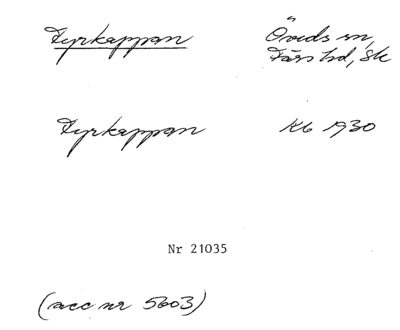 Fyrkappan Öveds sn,
Färs hd, Sk
Fyrkappan Kb 1930
Nr 21035
(acc nr 5603)